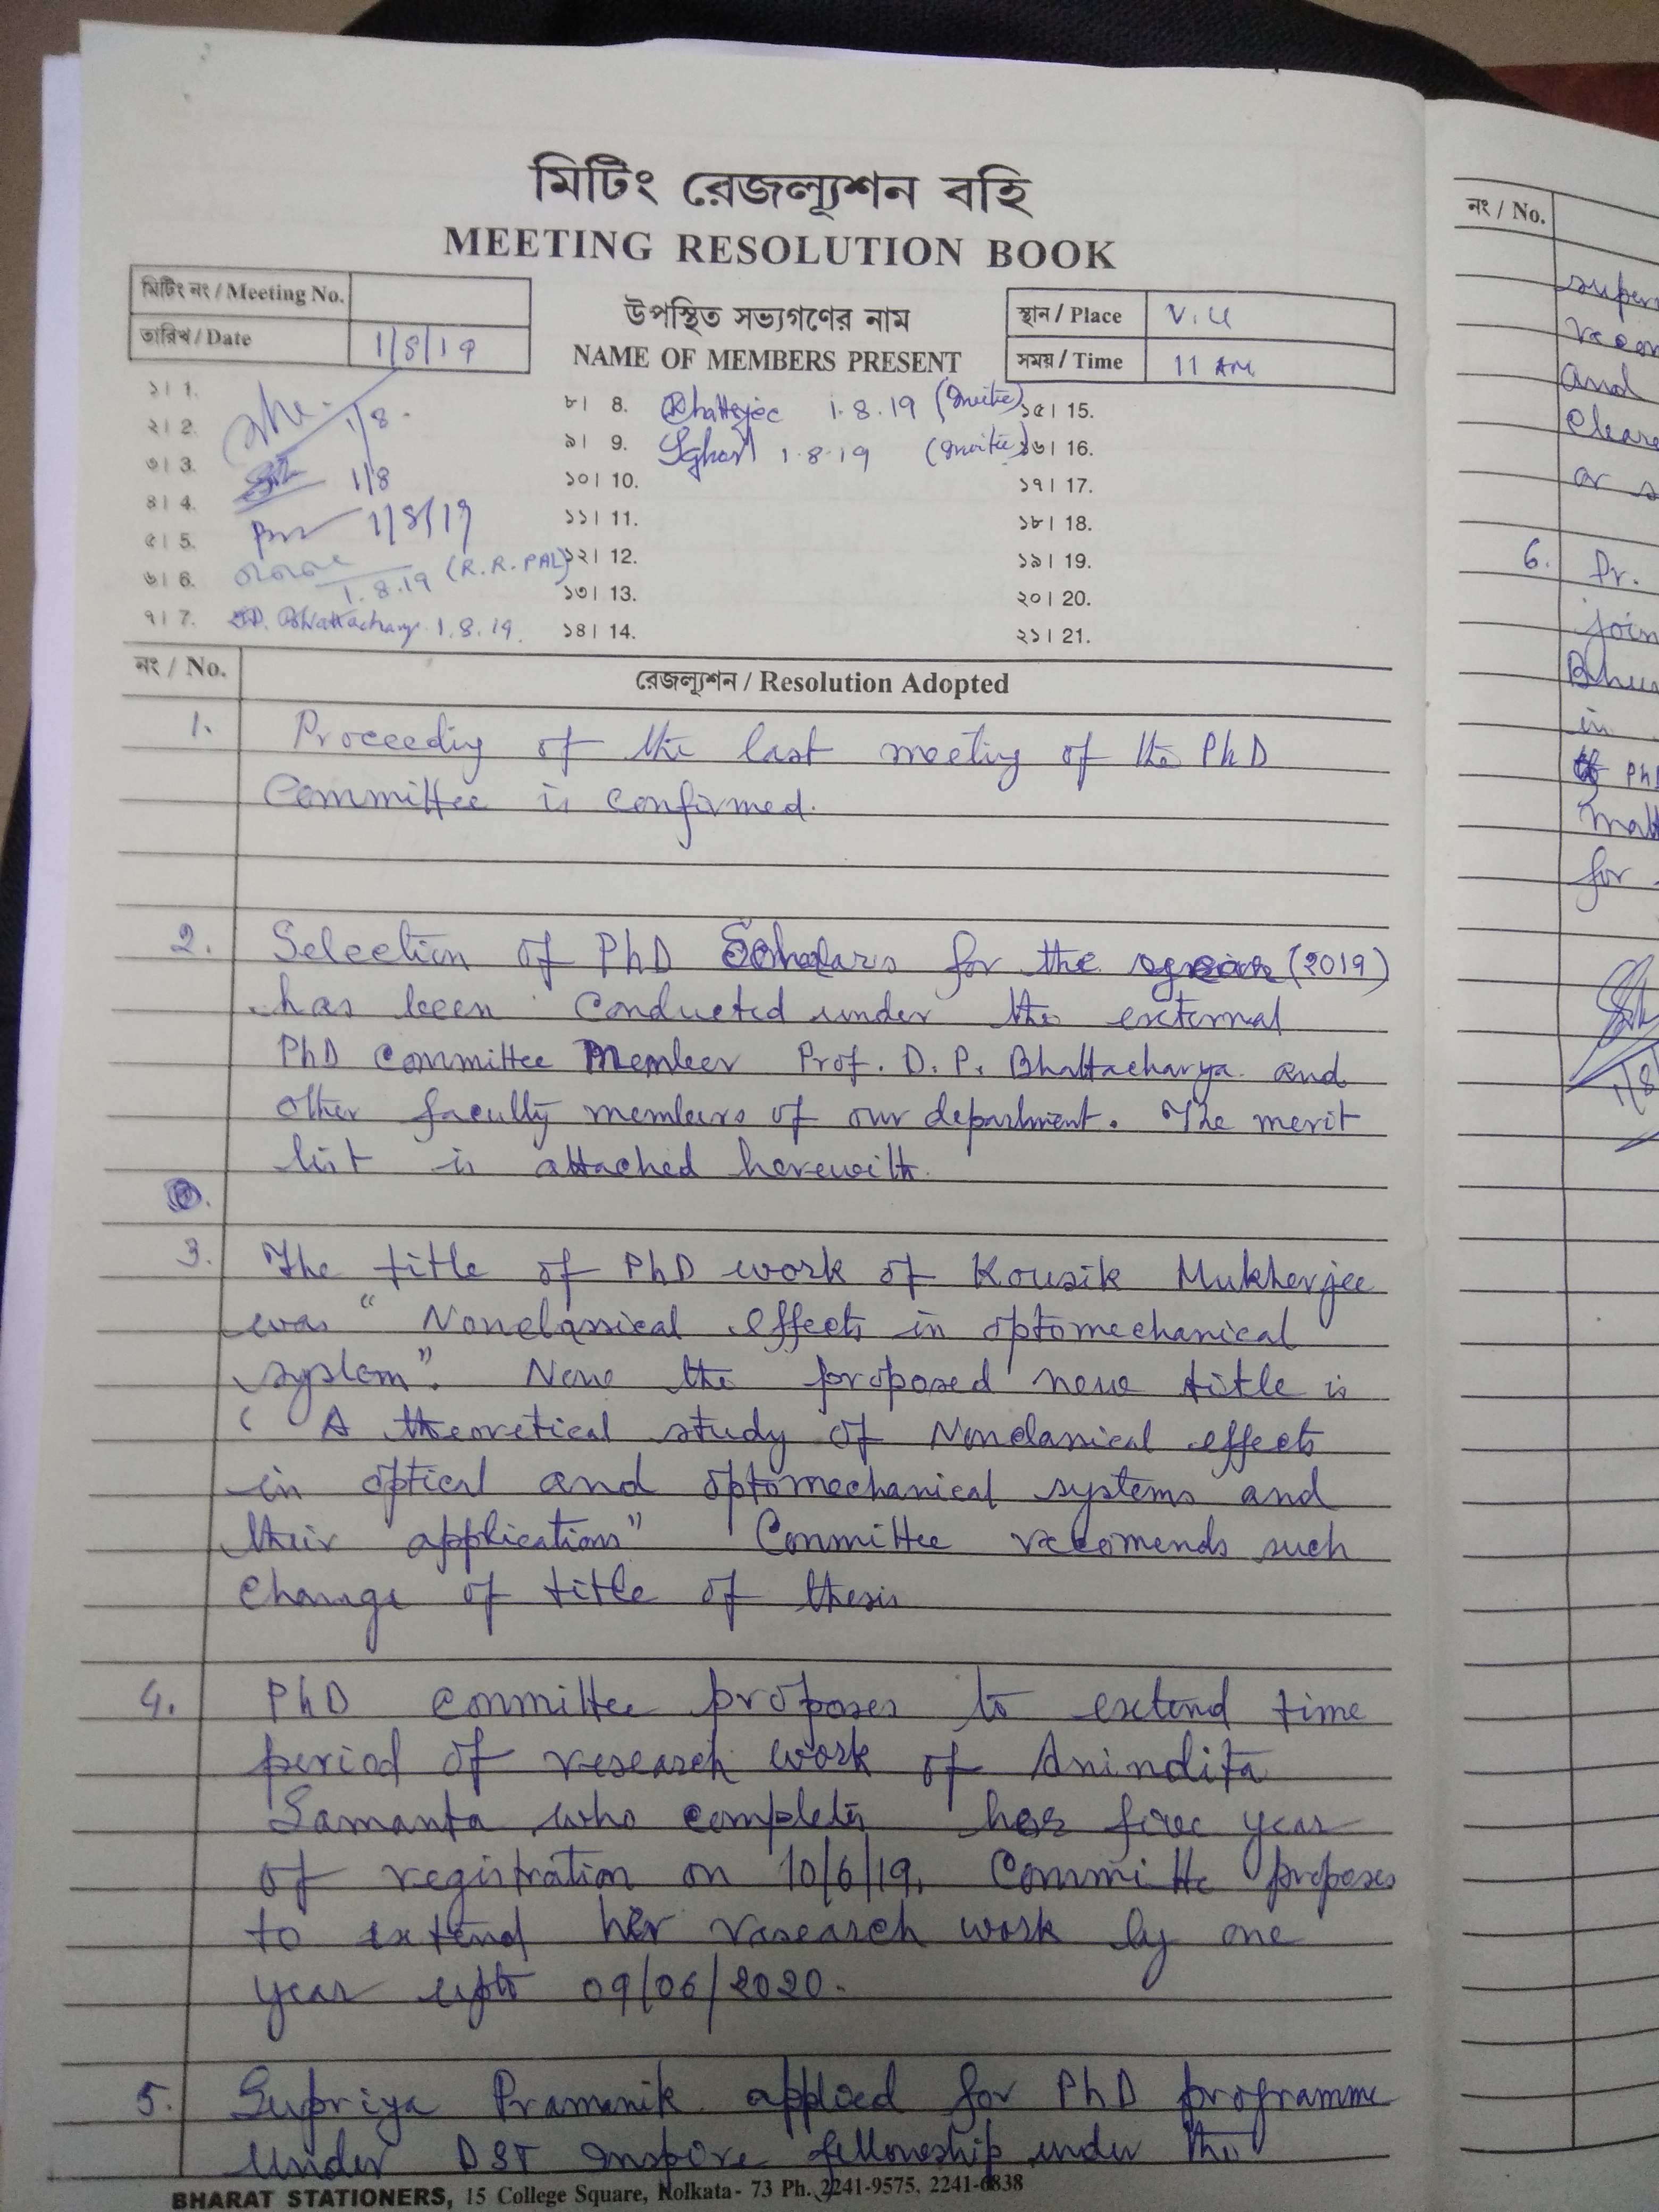 মিটিং রেজল্যূশন বহি
MEETING RESOLUTION BOOK
মিটিং নং / Meeting No.
তারিখ / Date 1/8/19
উপস্থিত সভ্যগণের নাম
NAME OF MEMBERS PRESENT
স্থান / Place V.U
সময় / Time 11 AM
১। 1.
২। 2. 1/8
৩। 3. 1/8
৪। 4. 1/8/19
৫। 5.
৬। 6. 1.8.19 (R.R.PAL)
৭। 7. D. Bhattacharya 1.8.19.
৮। 8. 1.8.19 (Invitee)
৯। 9. 1.8.19 (Invitee)
১০। 10.
১১। 11.
১২। 12.
১৩। 13.
১৪। 14.
১৫। 15.
১৬। 16.
১৭। 17.
১৮। 18.
১৯। 19.
২০। 20.
২১। 21.
নং / No. রেজল্যূশন / Resolution Adopted
1. Proceeding of the last meeting of the PhD
Committee is confirmed.
2. Selection of PhD Scholars for the year (2019)
has been conducted under the external
PhD Committee Member Prof. D. P. Bhattacharya and
other faculty members of our department. The merit
list is attached herewith.
3. The title of PhD work of Kousik Mukherjee
was "Nonclassical effects in optomechanical
system". Now the proposed new title is
( A theoretical study of Nonclassical effects
in optical and optomechanical systems and
their applications" Committee recomends such
change of title of thesis
4. PhD committee proposes to extend time
period of research work of Anindita
Samanta who completes her five year
of registration on 10/6/19, Committe proposes
to extend her research work by one
year upto 09/06/2020.
5. Supriya Pramanik applied for PhD programme
under DST Inspire fellowship under the
BHARAT STATIONERS, 15 College Square, Kolkata- 73 Ph. 2241-9575, 2241-6838
নং / No.
and
or
6. Dr.
join
in
PhD
for
1/8